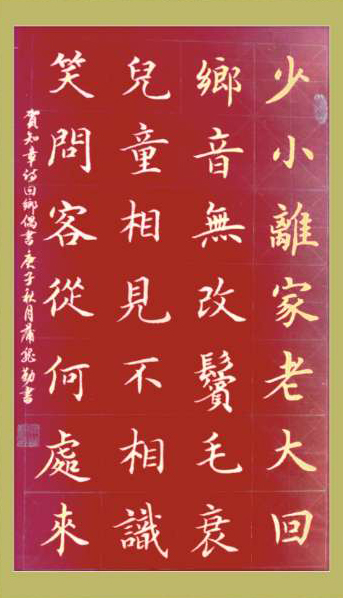 少小離家老大回
鄉音無改鬢毛衰
兒童相見不相識
笑問客從何處來
賀知章詩回鄉偶書庚子秋月蕭 勤書